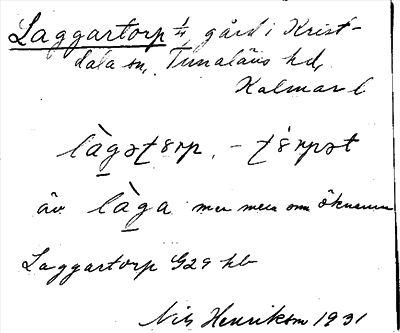 Laggartorp 1/4, gård i Krist-
dala sn, Tunaläns hd,
Kalmar l
làgətərp, - tərpət
äv làga men mera om öknamn
Laggartorp G29 hb
Nils Henrikson 1931